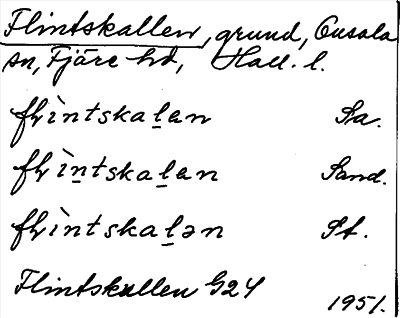 Flintskallen, grund, Onsala
sn, Fjäre hd, Hall. l.
flìntskaḻan Sa.
flìṉtskaḻan Sand.
flìntskaḻən St.
Flintskallen G24
1951.